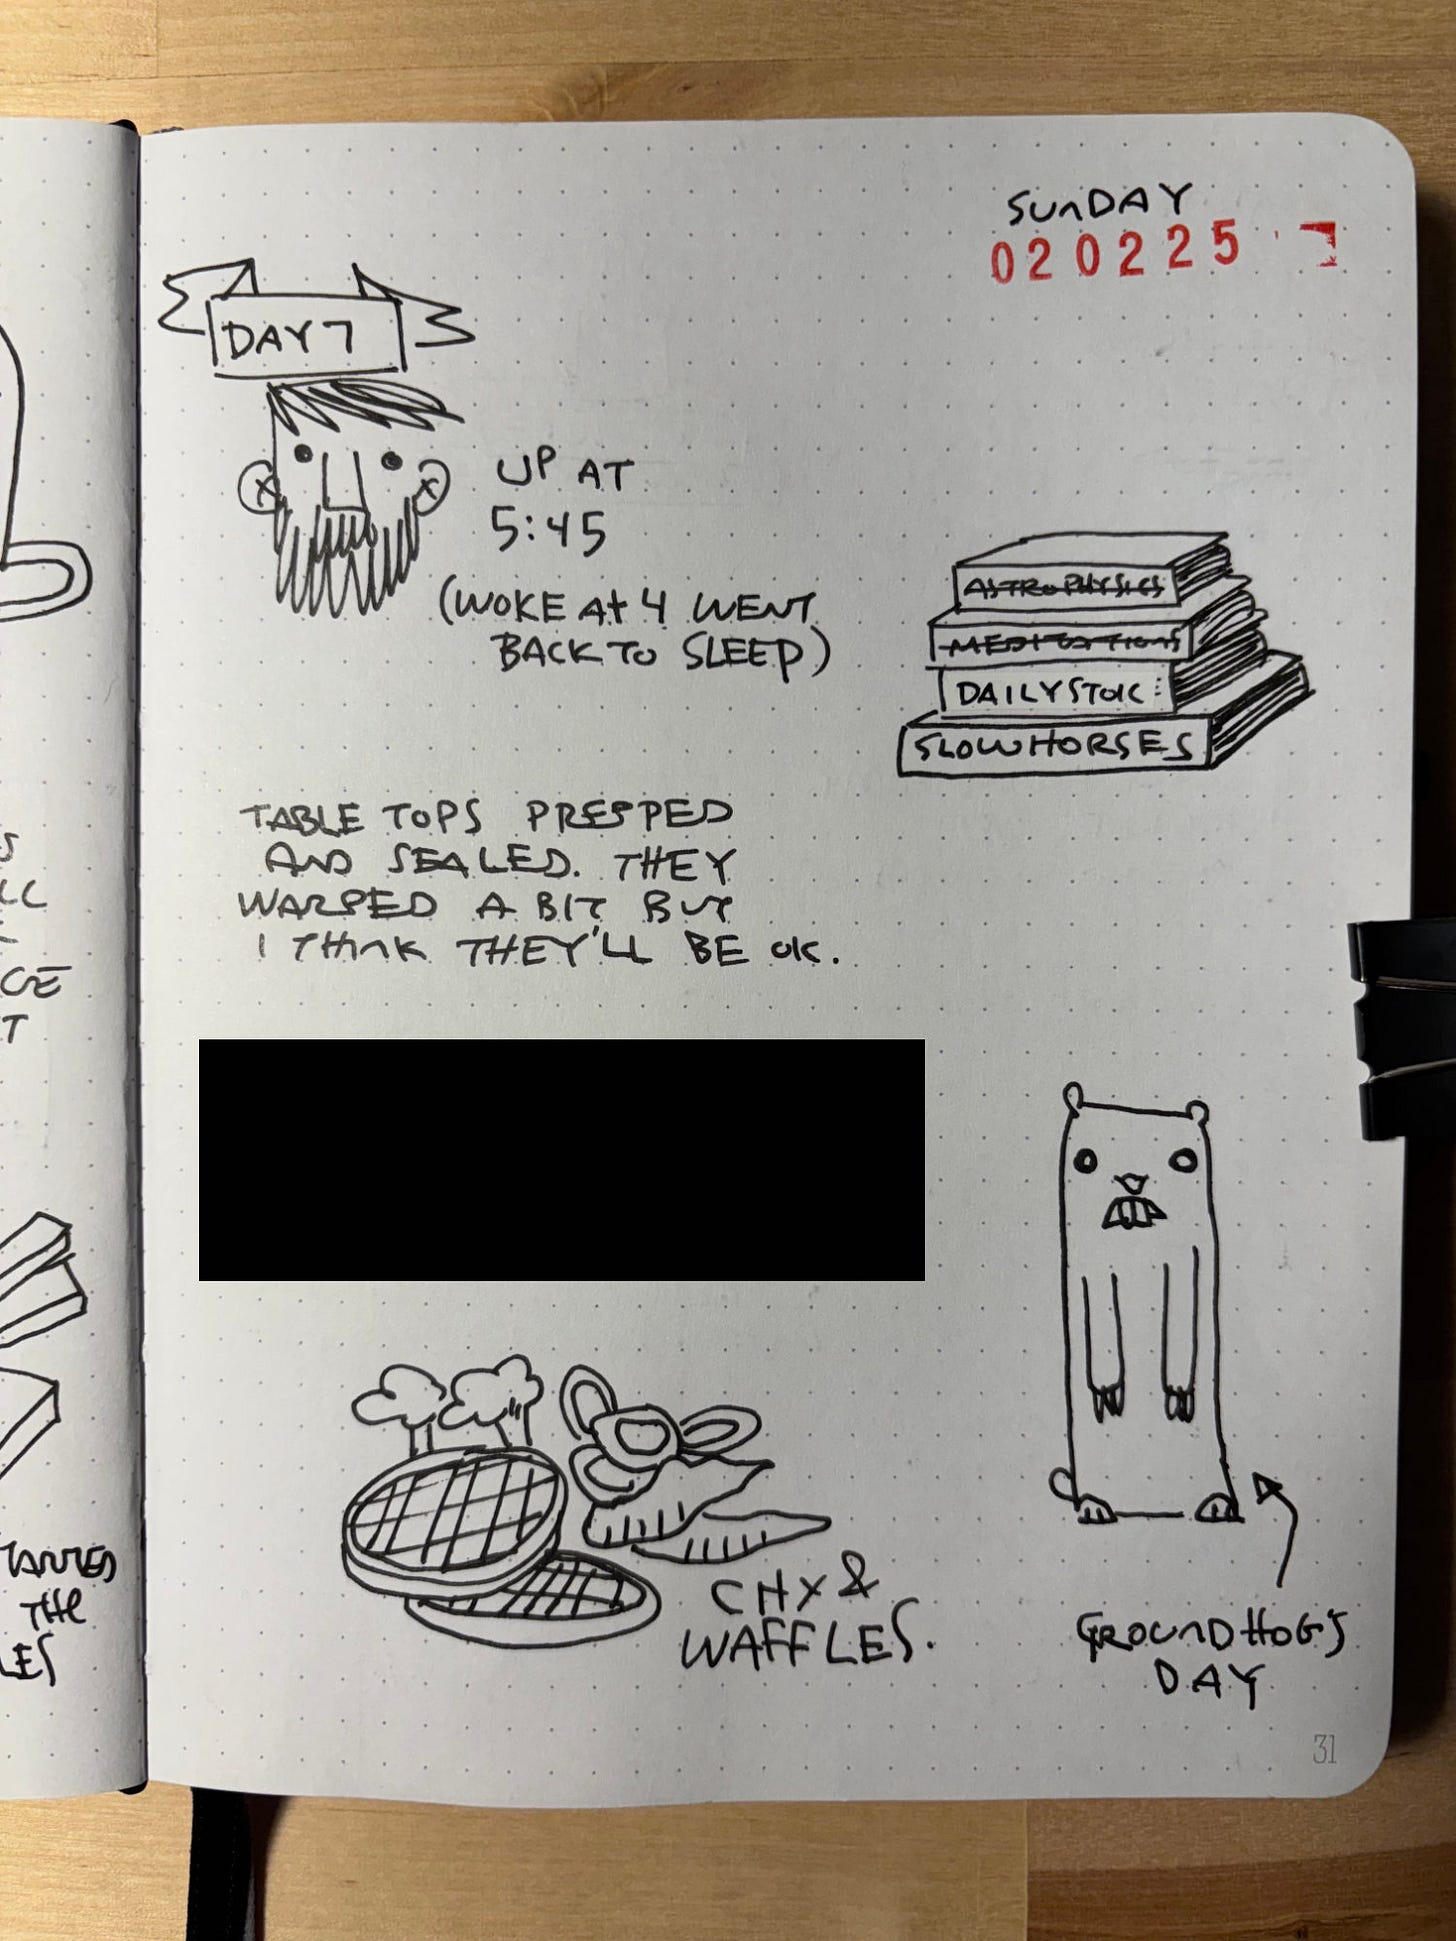 SUNDAY
020225
DAY 7
UP AT
5:45
(WOKE AT 4 WENT
BACK TO SLEEP)
ASTROPHYSICS
MEDITATIONS
DAILY STOIC
SLOW HORSES
TABLE TOPS PREPPED
AND SEALED. THEY
WARPED A BIT BUT
I THINK THEY'LL BE OK.
CHX &
WAFFLES.
GROUNDHOG'S
DAY
31
THE